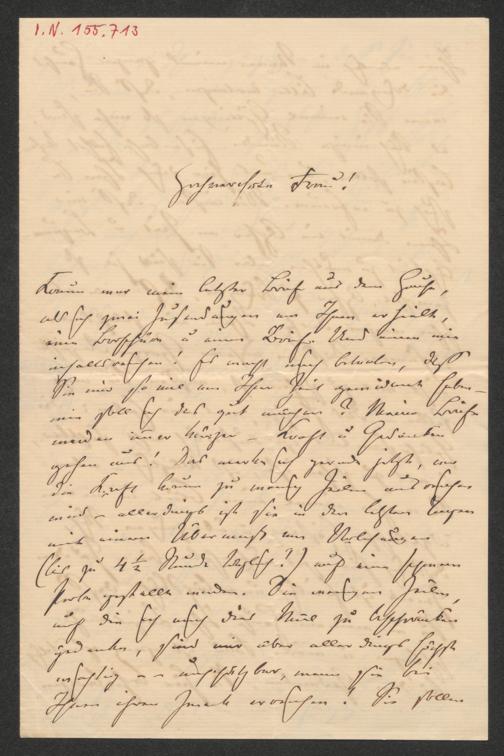 I.N. 155.713
Hochverehrte Frau!
Kaum war mein letzter Brief aus dem Hause,
als ich zwei Zusendungen von Ihnen erhielt,
eine Broschüre u einen Brief. Und einen wie
inhaltsreichen! Es macht mich betrübt, daß
Sie mir so viel von Ihrer Zeit gewidmet haben –
wie soll ich das gut machen? Meine Briefe
werden immer kürzer – Kraft u Gedanken
gehen aus! Das merke ich gerade jetzt, wo
die Kraft kaum zu wenig Zeilen ausreichen
wird – allerdings ist sie in den letzten Tagen
mit einem Übermaß von Vorlesungen
(bis zu 4 ½ Stunde täglich!) auf eine schwere
Probe gestellt worden. Die wenigen Zeilen,
auf die ich mich dies Mal zu beschränken
gedenke, sind mir aber allerdings höchst
wichtig – unschätzbar, wenn sie bei
Ihnen ihren Zweck erreichen! Sie sollen